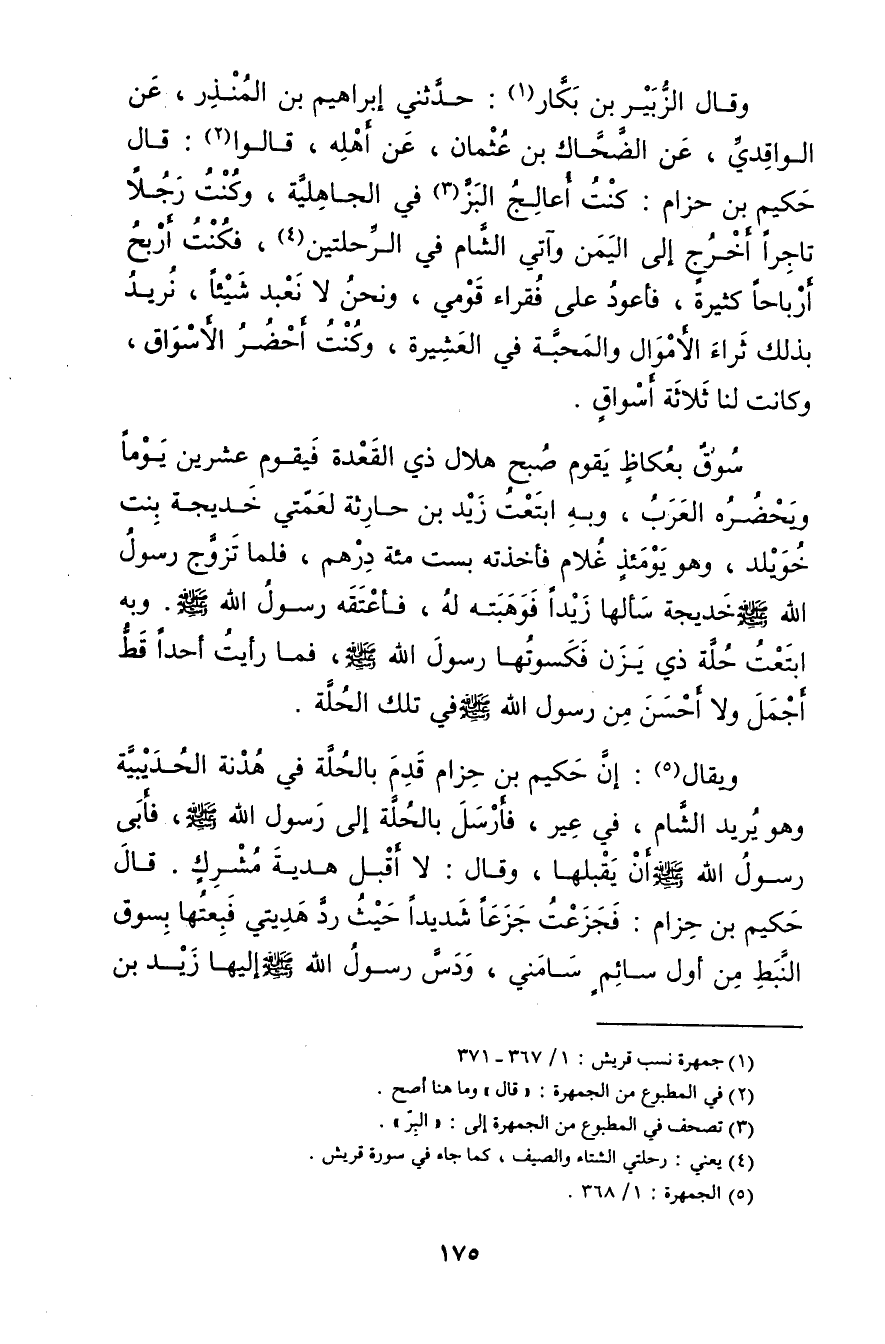 وقـال الزُّبَيْـر بن بَكَّار(١) : حـدَّثني إبراهيم بن المُنْـذِر ، عَن
الـواقِديِّ ، عَن الضَّحَّاك بن عُثْمان ، عَن أَهْلِه ، قـالـوا(٢) : قـال
حَكيم بن حزام : كنْتُ أُعالِـجُ البَزَّ(٣) في الجـاهِليَّة ، وكُنْتُ رَجُـلاً
تاجِراً أَخْـرُج إلى اليَمَن وآتي الشَّام في الـرِّحلتين(٤) ، فكُنْتُ أَرْبحُ
أَرْباحاً كثيرةً ، فأعودُ على فُقراء قَوْمي ، ونحنُ لا نَعْبد شَيْئاً ، نُريـدُ
بذلك ثَراءَ الأَمْوَال والمَحبَّة في العَشِيرة ، وكُنْتُ أَحْضُـرُ الأسْوَاق ،
وكانت لنا ثَلاثَة أَسْواقٍ .
سُوقٌ بعُكاظٍ يَقوم صُبح هلال ذي القَعْدة فَيقـوم عشرين يَـوْماً
ويَحْضُـرُه العَرَبُ ، وبـهِ ابتَعْتُ زَيْد بن حـارِثة لعَمّتي خَـديجـة بِنت
خُوَيْلد ، وهو يَوْمَئذٍ غُلام فأخذته بست مئة دِرْهم ، فلما تَزوَّج رسولُ
الله ﷺ خَديجة سَألها زَيْداً فَوَهَبَتـه لهُ ، فـأعْتَقَه رسـولُ الله ﷺ. وبه
ابتَعْـتُ حُلَّة ذي يَـزَن فَكَسوتُهـا رسولَ الله ﷺ، فمـا رأيتُ أحداً قَطُّ
أَجْمَلَ ولا أَحْسَنَ مِن رسول الله ﷺ في تلك الحُلَّة .
ويقال(٥) : إنَّ حَكيم بن حِزام قَدِمَ بالحُلَّة في هُدْنة الحُـدَيْبيَّة
وهو يُريد الشَّام ، في عِير ، فأَرْسَلَ بالحُلَّة إلى رَسول الله ﷺ، فأَبَى
رسـولُ الله ﷺ أَنْ يَقْبلهـا ، وقـال : لا أَقْبـل هـديةَ مُشْـرِكٍ . قـالَ
حَكيم بن حِزام : فَجَزَعْـتُ جَزَعَاً شَديداً حَيْثُ ردَّ هَدِيتي فَبِعتُها بِسوق
النَّبَطِ مِن أول سـائِمٍ سَـامَني ، وَدَسَّ رسـولُ الله ﷺ إليهـا زَيْـد بن
(١) جمهرة نسب قريش : ١/ ٣٦٧ـ ٣٧١
(٢) في المطبوع من الجمهرة : « قال » وما هنا أصح .
(٣) تصحف في المطبوع من الجمهرة إلى : « البِرّ » .
(٤) يعني : رحلتي الشتاء والصيف ، كما جاء في سورة قريش .
(٥) الجمهرة : ١/ ٣٦٨ .
١٧٥